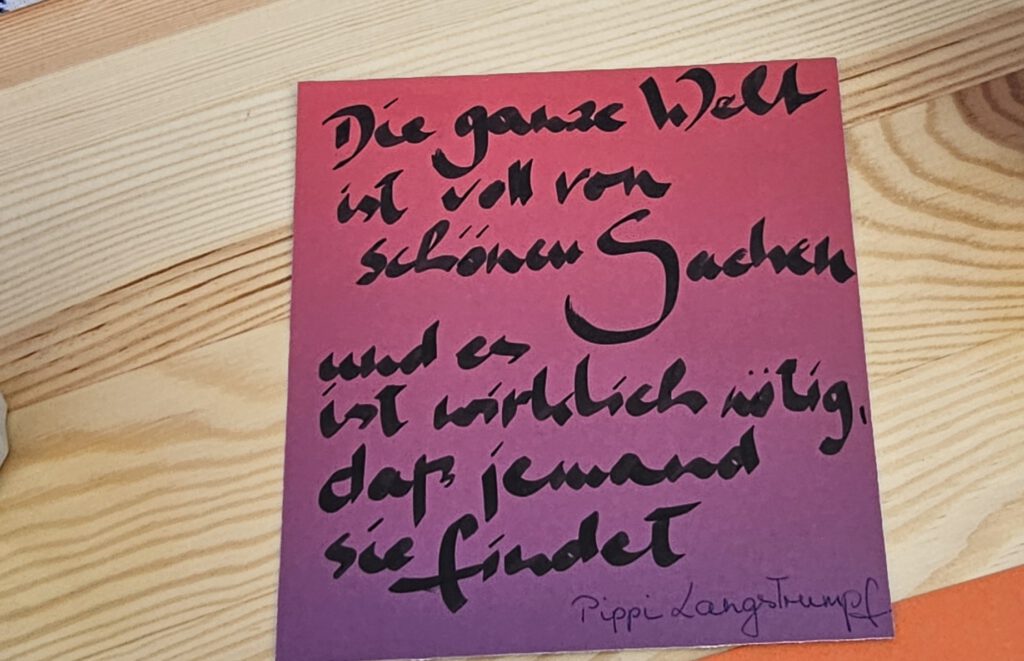 Die ganze Welt
ist voll von
schönen Sachen
und es
ist wirklich nötig,
daß jemand
sie findet
Pippi Langstrumpf